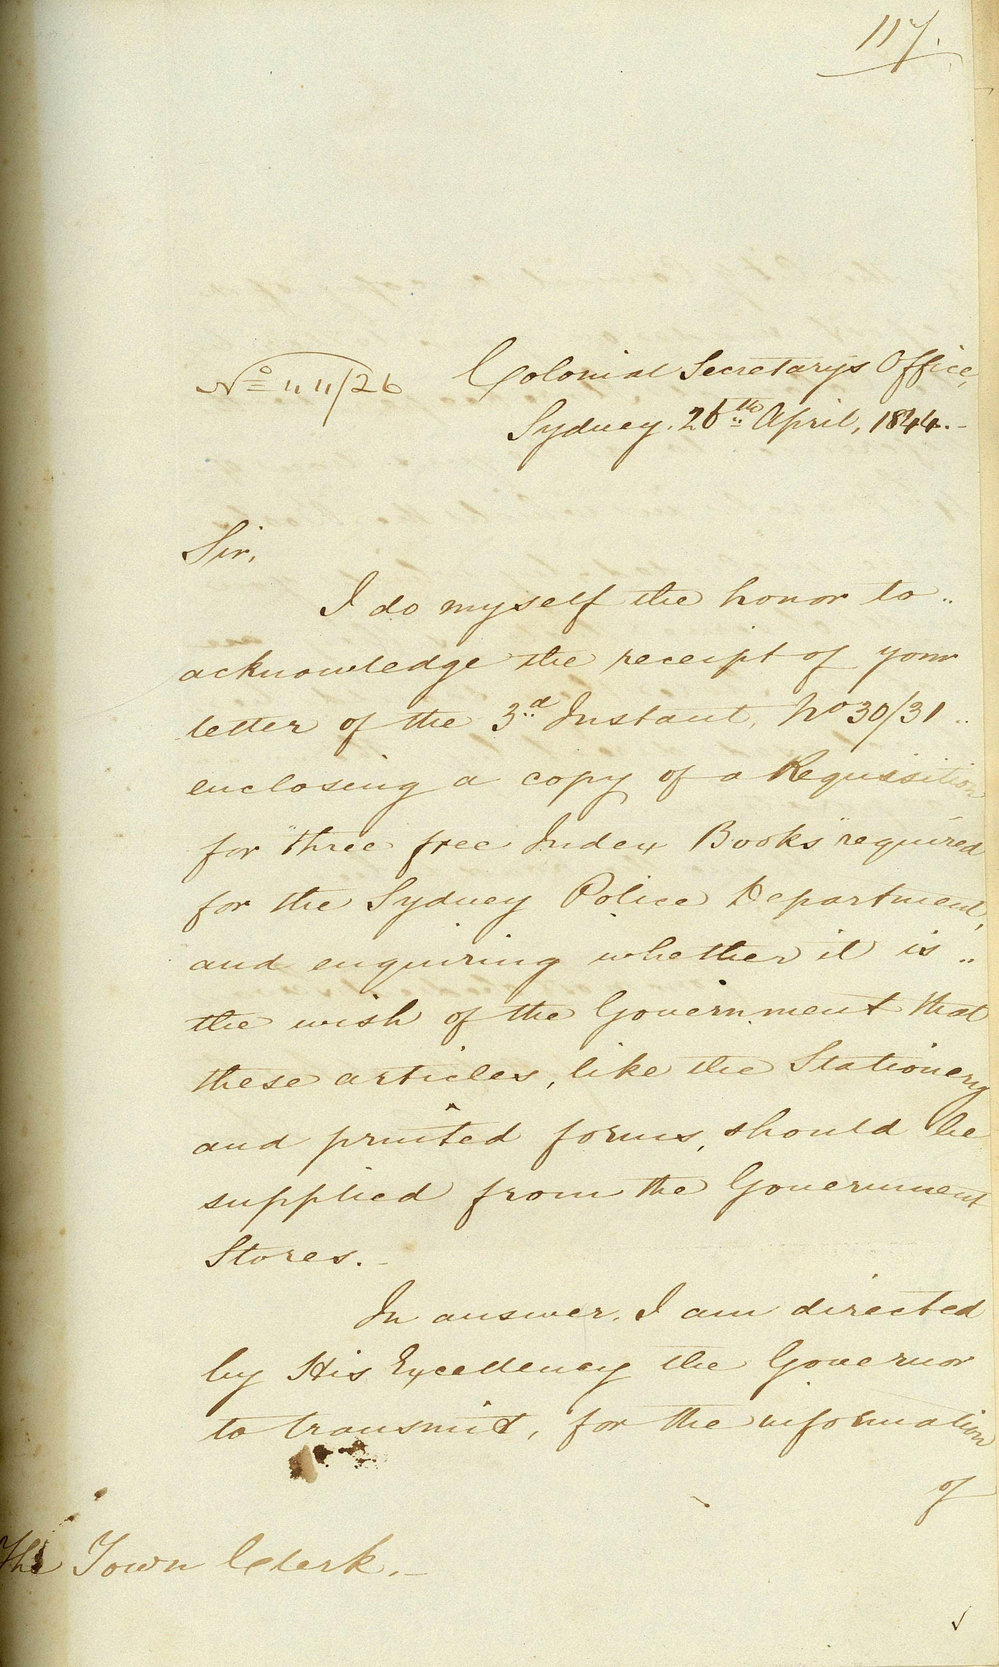 117.
No 44/26 Colonial Secretary's Office,
Sydney. 26th April, 1844.-
Sir,
I do myself the honor to ..
acknowledge the receipt of your
letter of the 3d. Instant, No 30/31 ..
enclosing a copy of a Requisition
for "three free Index Books" required
for the Sydney Police Department,
and enquiring whether it is ..
the wish of the Government that
these articles, like the Stationery
and printed forms, should be
supplied from the Government
Stores.-
In answer, I am directed
by His Excellency the Governor
to transmit, for the information
of
The Town Clerk.-